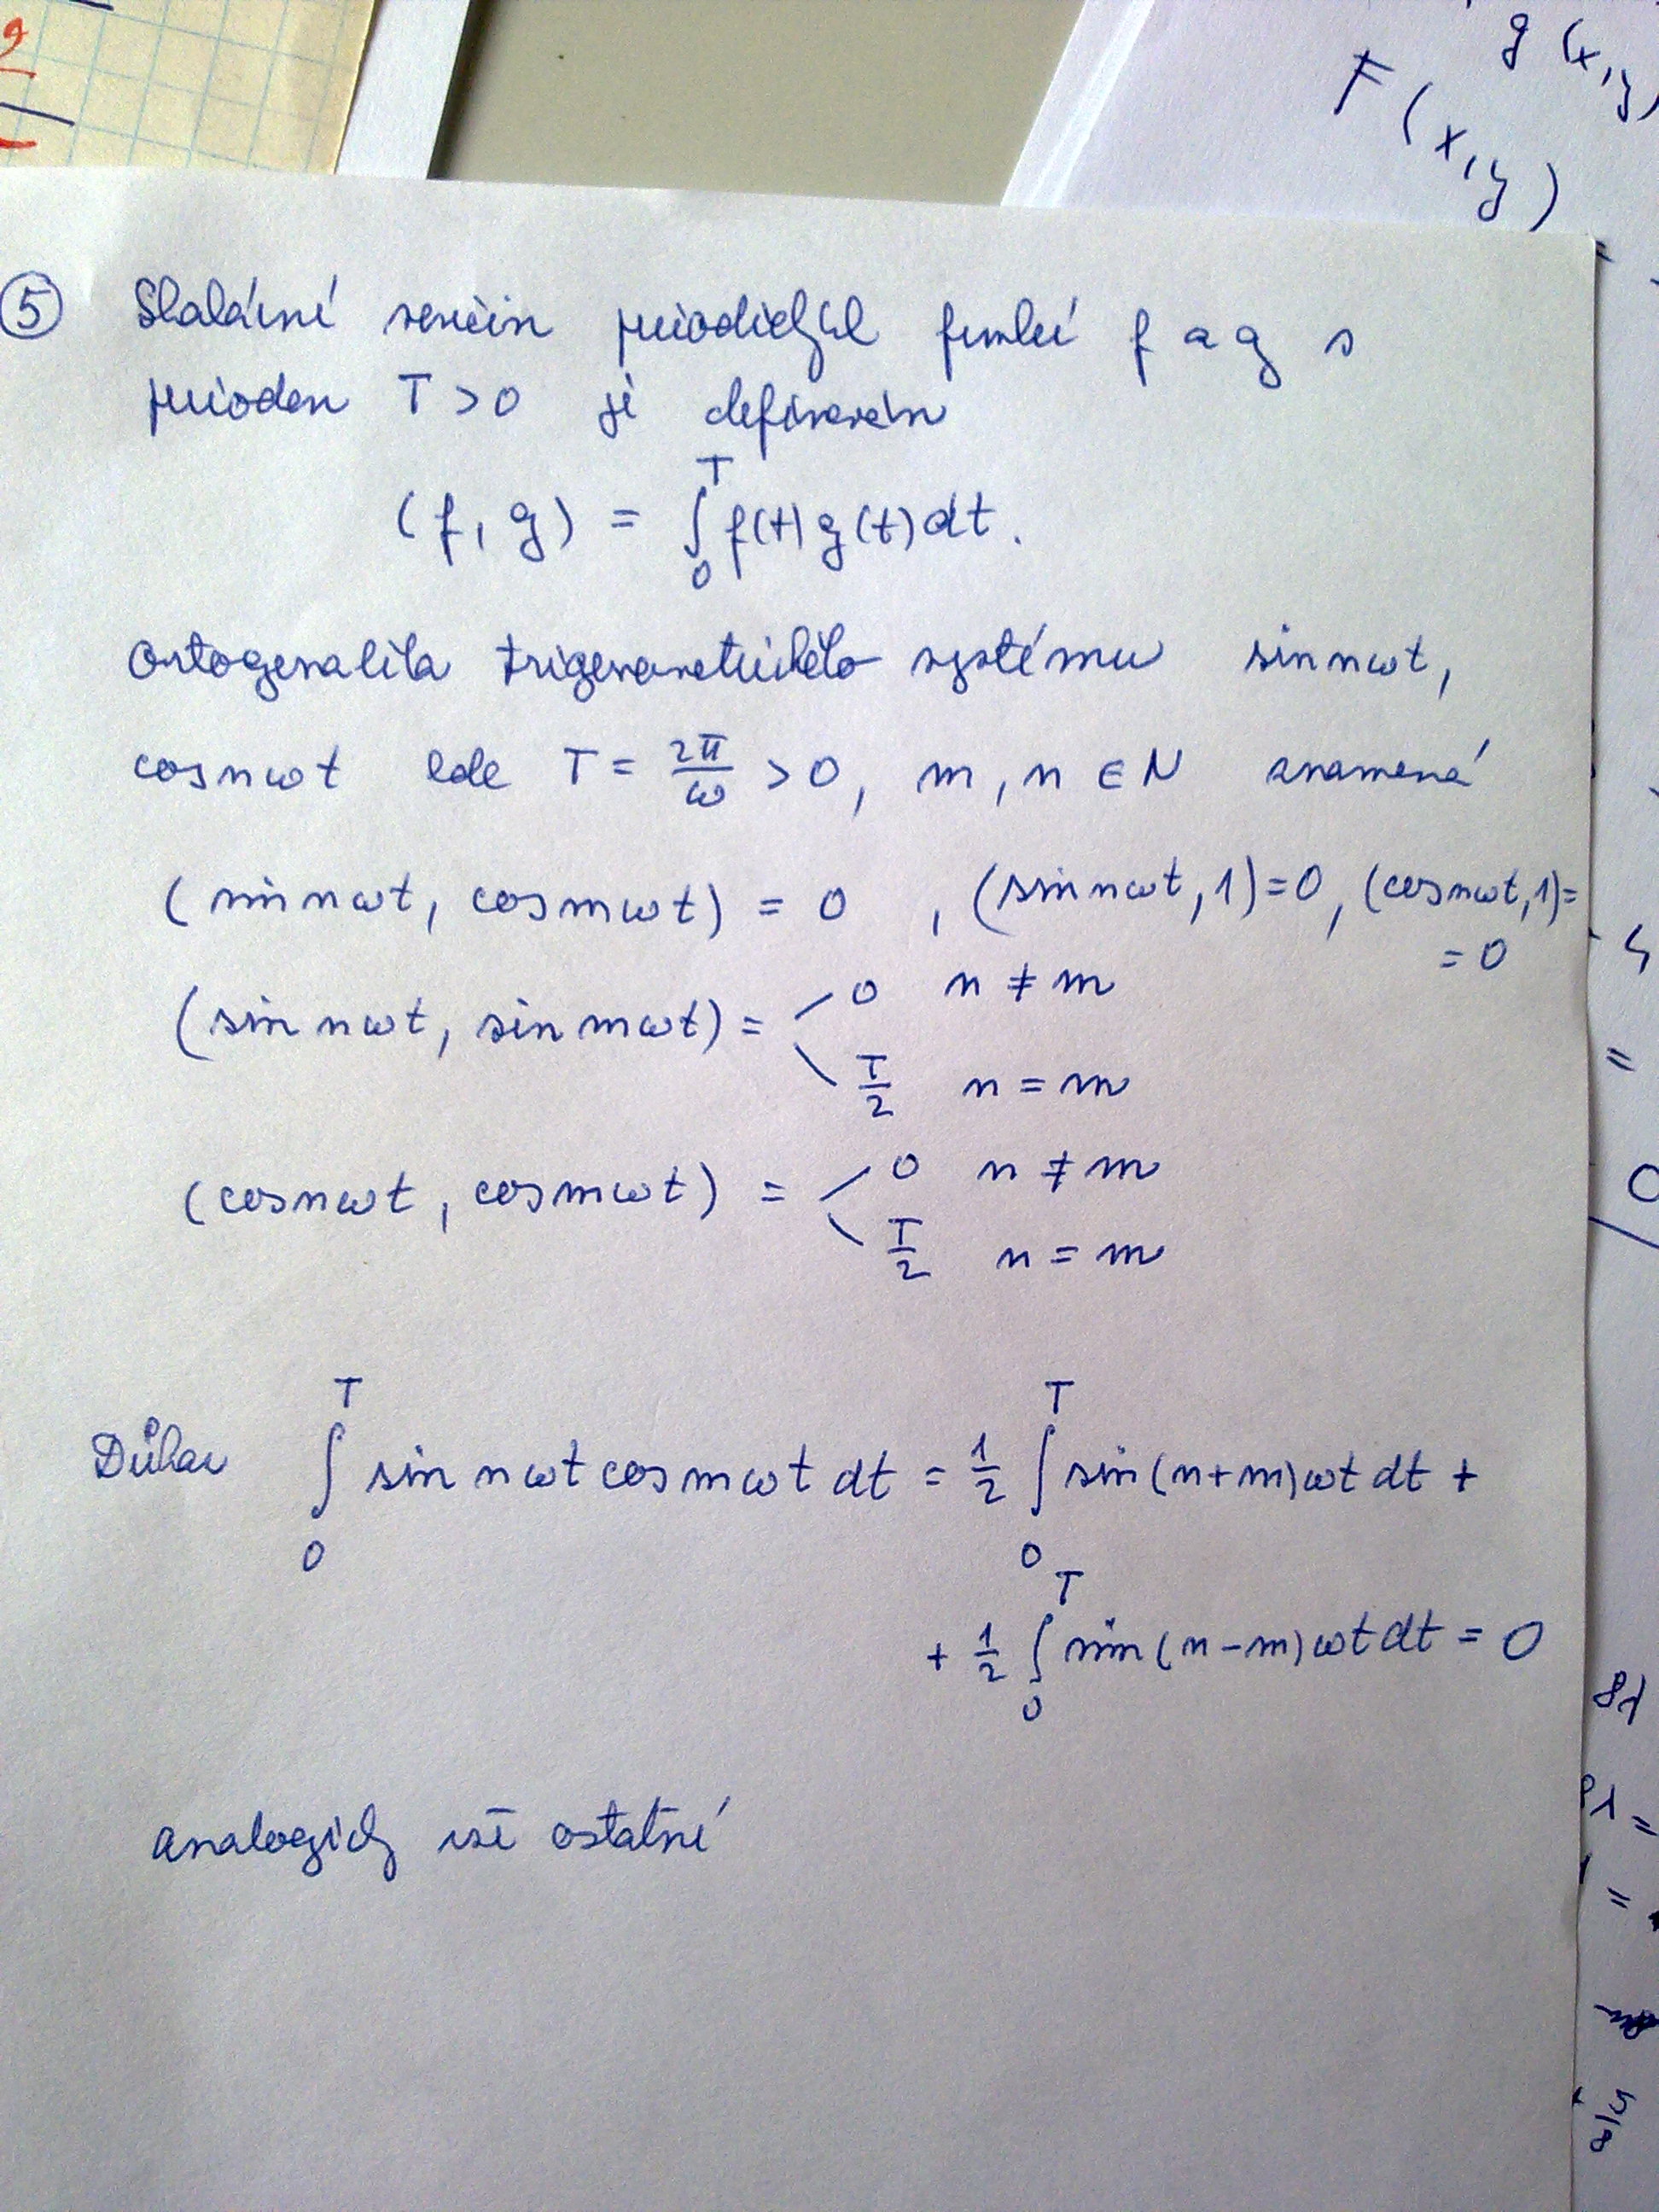 g(x,y)
F(x,y)
⑤ Skalární součin periodických funkcí f a g s
periodou T > 0 je definován
(f, g) = ∫₀ᵀ f(t) g(t) dt.
Ortogonalita trigonometrického systému sin nωt,
cos nωt kde T = 2π/ω > 0, m, n ∈ N znamená
(sin nωt, cos mωt) = 0, (sin nωt, 1) = 0, (cos nωt, 1) =
= 0
(sin nωt, sin mωt) = 0 n ≠ m
T/2 n = m
(cos nωt, cos mωt) = 0 n ≠ m
T/2 n = m
Důkaz ∫₀ᵀ sin nωt cos mωt dt = 1/2 ∫₀ᵀ sin(n+m)ωt dt +
+ 1/2 ∫₀ᵀ sin(n-m)ωt dt = 0
analogicky vše ostatní